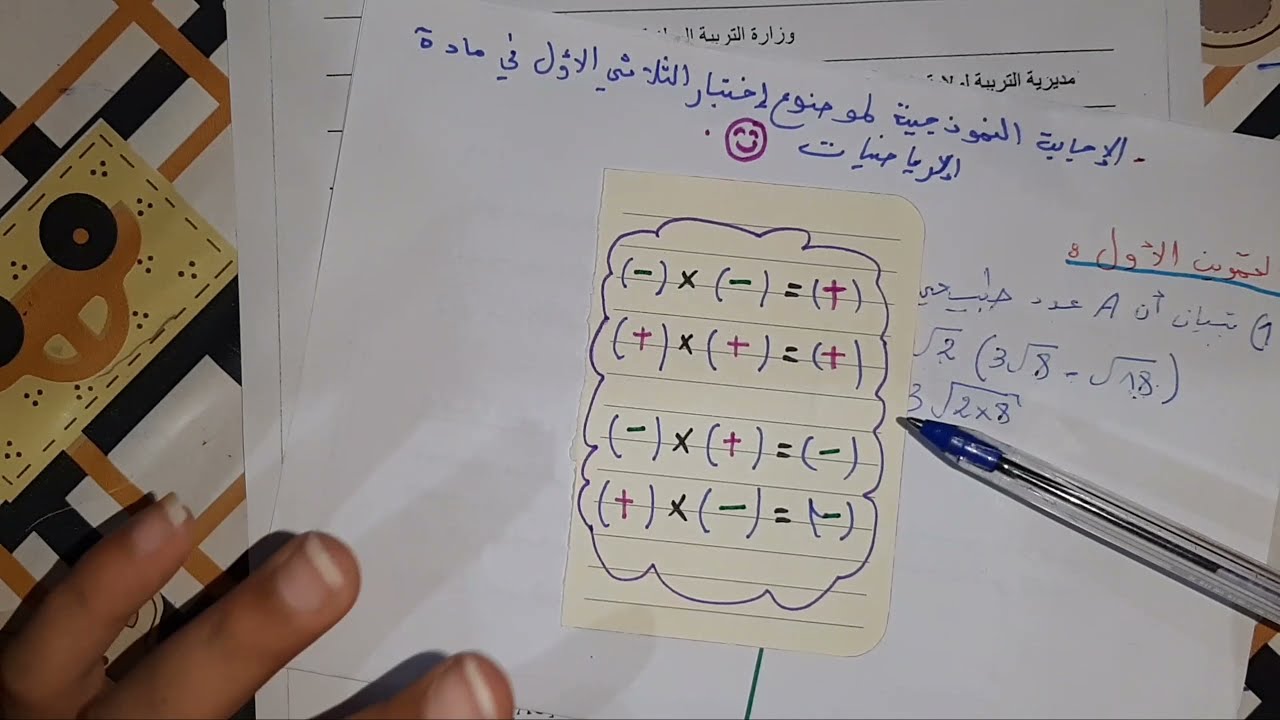 وزارة التربية
مديرية التربية
- الإجابة النموذجية لموضوع إختبار الثلاثي الأول في مادة
الرياضيات
(-) × (-) = (+)
(+) × (+) = (+)
(-) × (+) = (-)
(+) × (-) = (-)
التمرين الأول :
1) تبيان أن A عدد طبيعي
√2 (3√8 - √18)
3√2×8